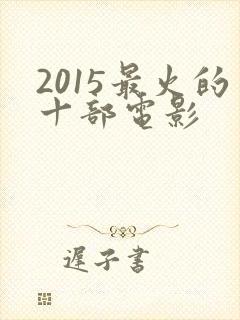 2015最火的
十部电影
遲子書